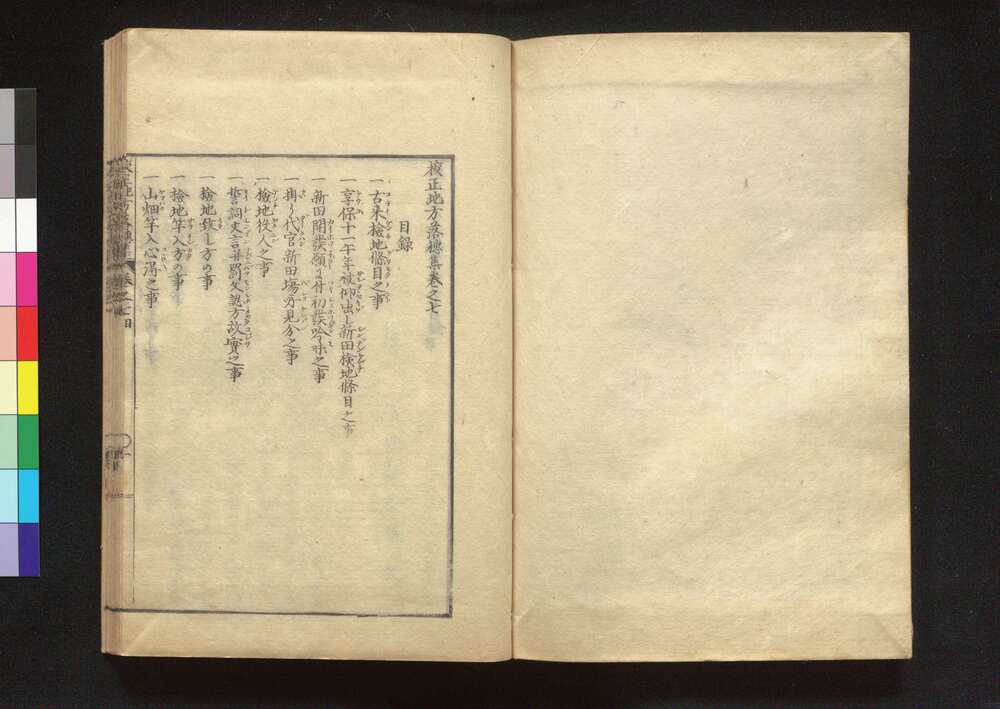 校正地方落穗集卷之七
目錄
一 古來檢地條目之事
一 享保十一午年被仰出し新田檢地條目之事
一 新田開發願に付初發吟味之事
一 掛り代官新田場所見分之事
一 檢地役人之事
一 誓詞文言并罰文認方故實之事
一 檢地致し方の事
一 檢地竿入方の事
一 山畑竿入心得之事